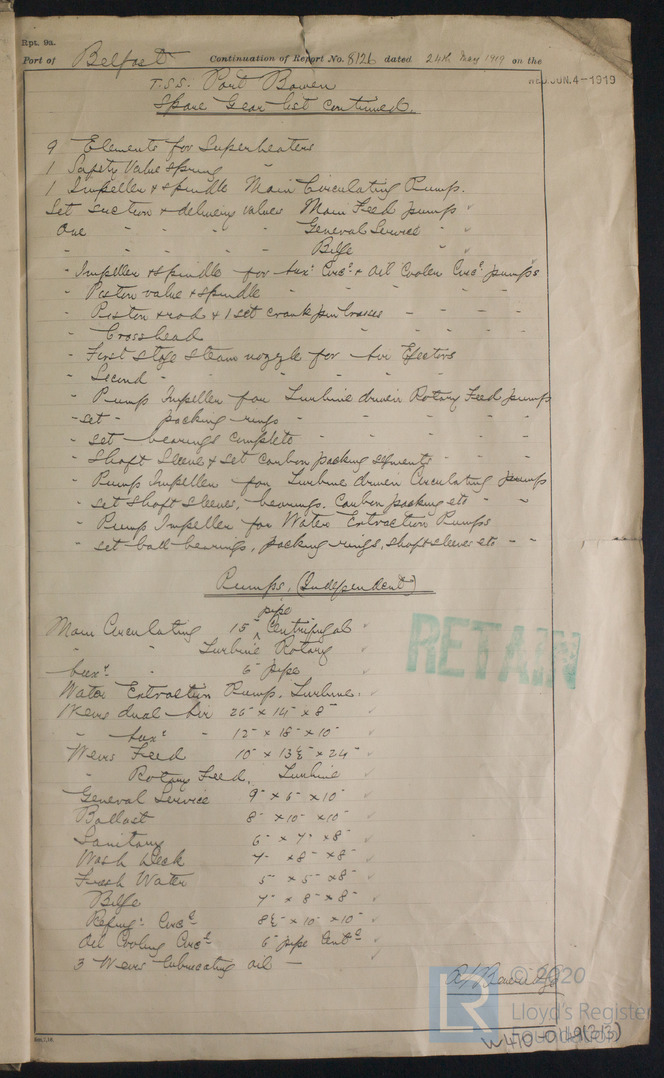 Rpt. 9a.
Port of Belfast Continuation of Report No. 8126 dated 24th May 1919 on the
WED. JUN. 4-1919
T.S.S. Port Bowen
Spare Gear list continued.
9 Elements for Superheaters
1 Safety Valve spring "
1 Impeller & spindle Main Circulating Pump.
Set suction & delivery valves Main Feed pump "
One - - - - General Service - "
- - - - - Bilge - "
- Impeller & spindle for Aux: Circ: & Oil Cooler Circ: pumps
- Piston valve & spindle - - - - - -
- Piston & rod & 1 set crank pin brasses - - - -
- Crosshead - - - -
- First stage steam nozzle for Air Ejectors
- Second - - - - -
- Pump Impeller for Turbine driven Rotary Feed pump
- set - packing rings - - - - -
- set bearings complete - - - - -
- Shaft Sleeve & set carbon packing segments - - - -
- Pump Impeller for Turbine driven Circulating pump
- set shaft sleeves, bearings, Carbon packing etc - -
- Pump Impeller for Water Extraction Pumps
- set ball bearings, packing rings, shaft sleeves etc - -
Pumps, (Independent)
Main Circulating 15" pipe Centrifugal
" " Turbine Rotary
Aux: " 6" pipe
Water Extraction Pump. Turbine.
Weirs dual Air 26" × 14" × 8"
" Aux: " 12" × 18" × 10"
Weirs Feed 10" × 13½" × 24"
" Rotary Feed, Turbine
General Service 9" × 6" × 10"
Ballast 8" × 10" × 10"
Sanitary 6" × 7" × 8"
Wash Deck 7" × 8" × 8"
Fresh Water 5" × 5" × 8"
Bilge 7" × 8" × 8"
Refrig: Circ: 8½" × 10" × 10"
Oil Cooling Circ: 6" pipe Cent:
3 Weirs lubricating oil —
RETAIN
© 2020
LR
Lloyd's Register
Foundation
W470-0149(3/3)